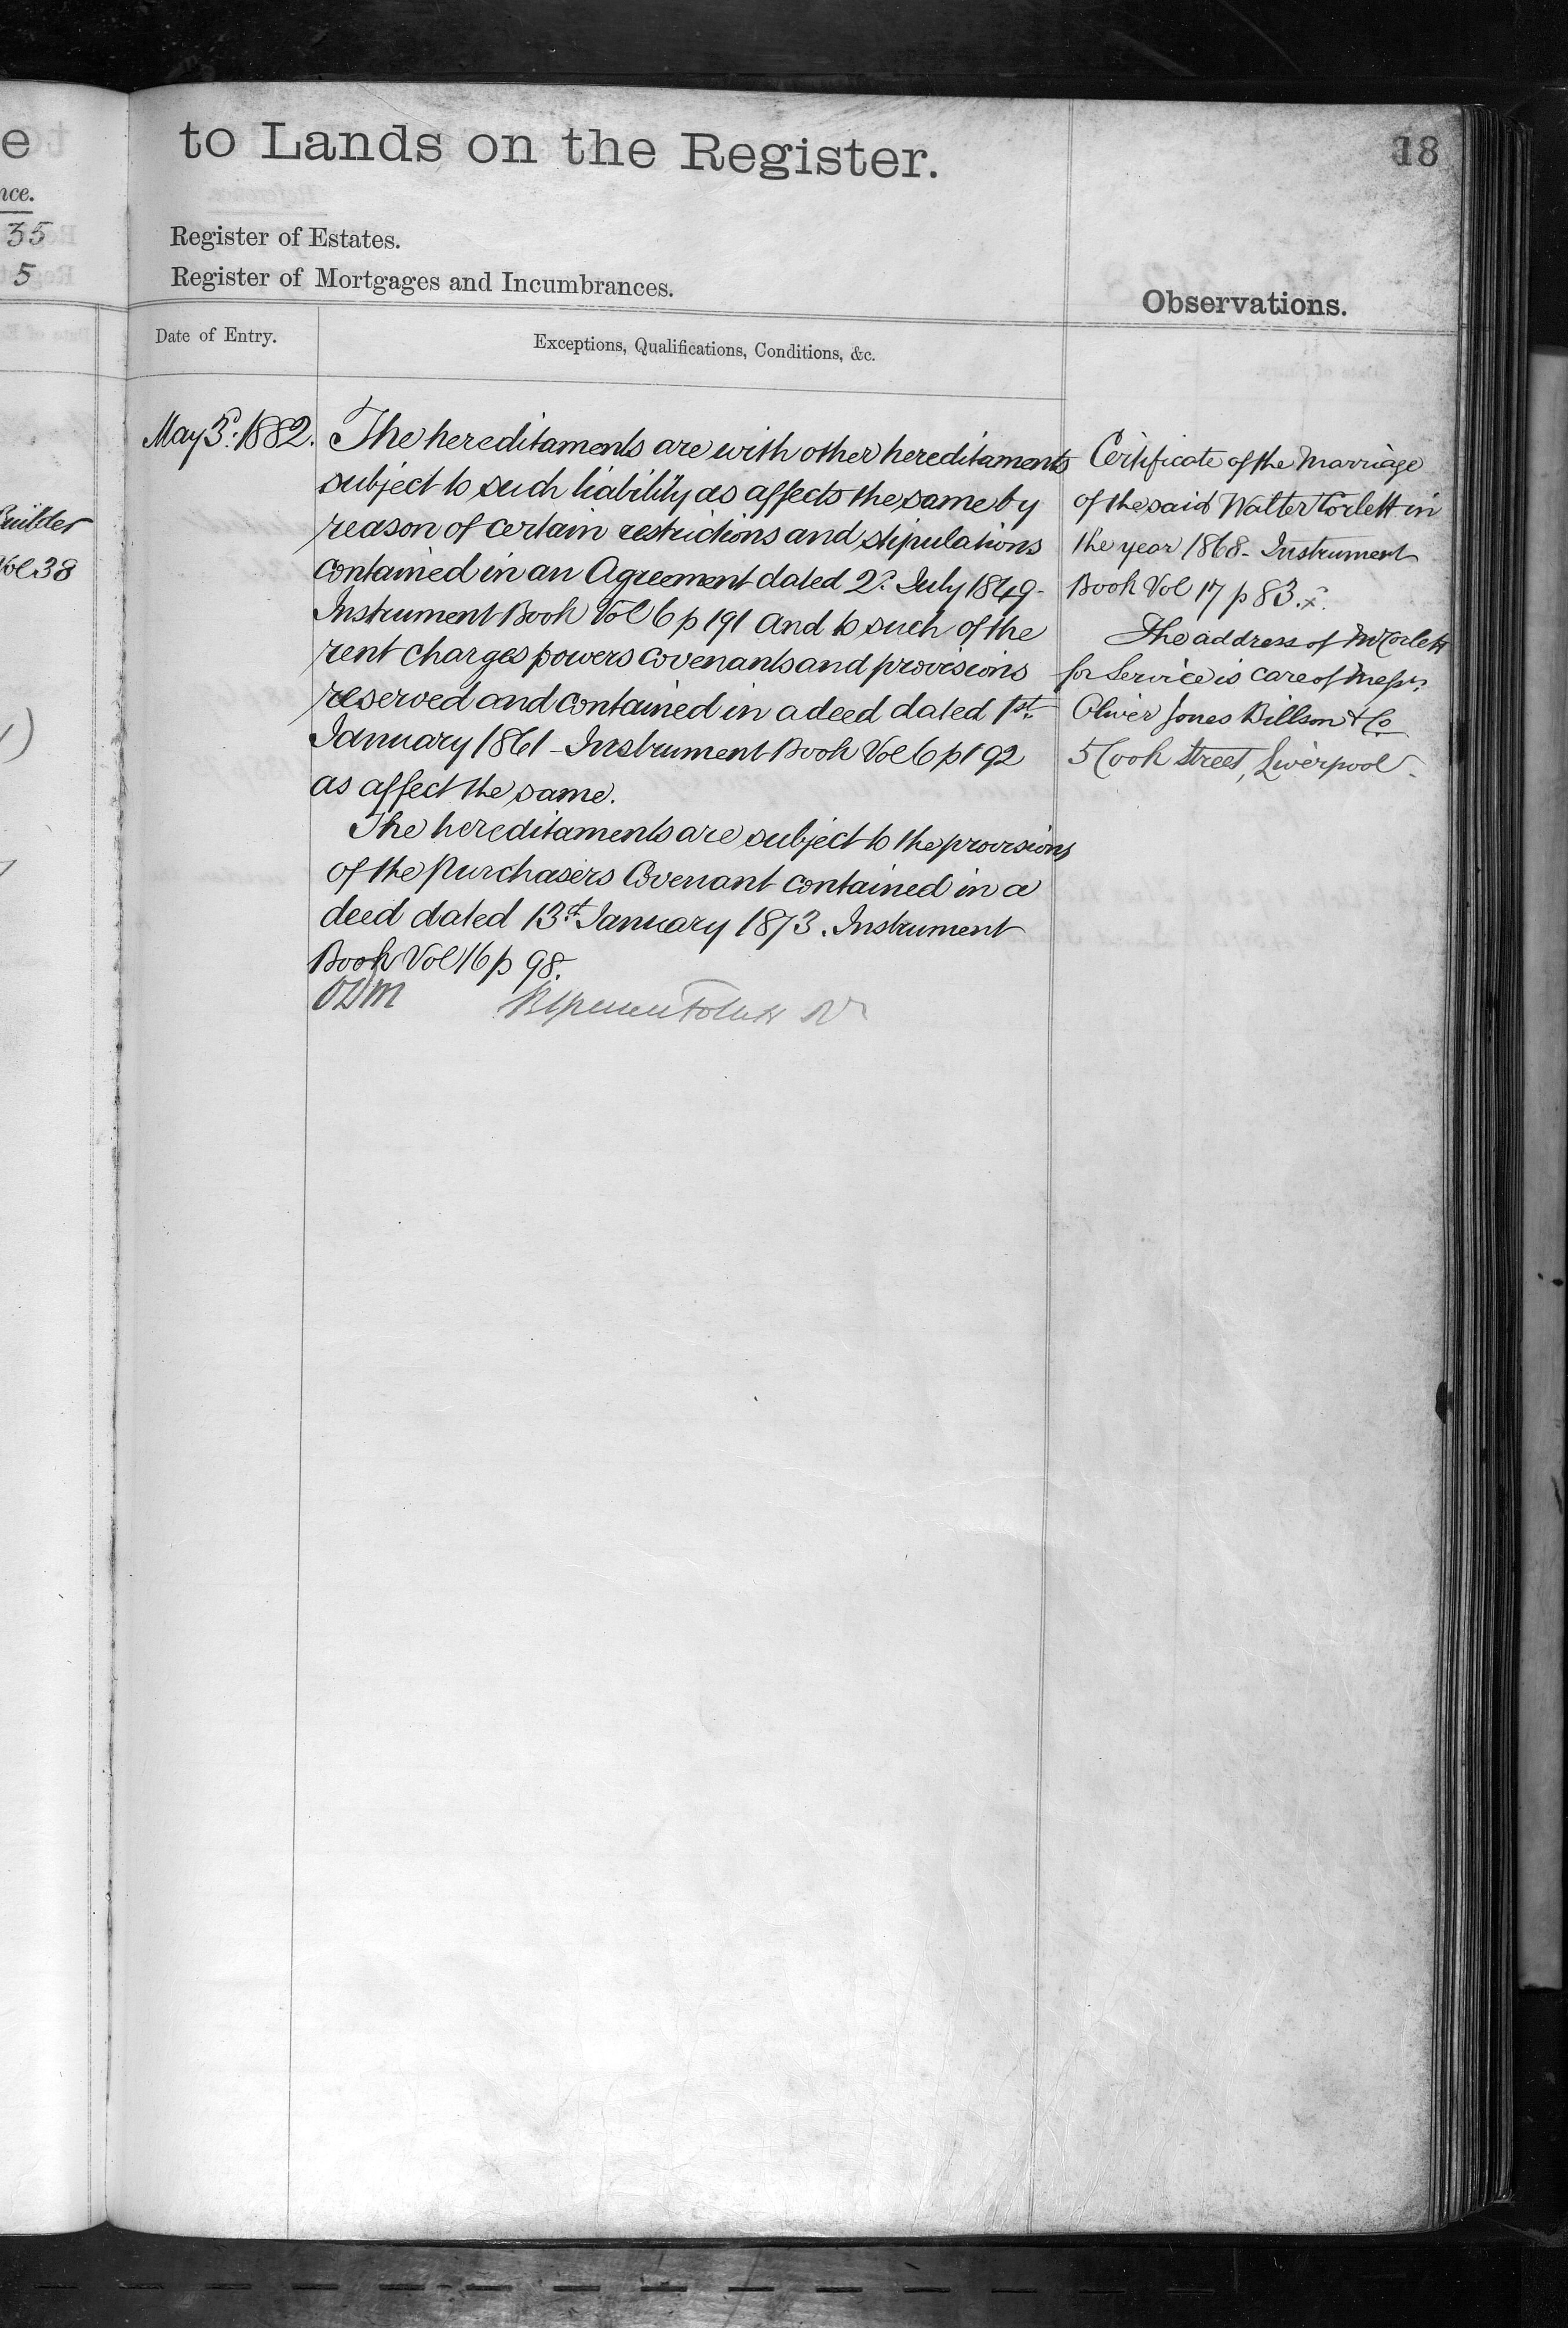 e
nce.
35
5
Builder
Vol 38
to Lands on the Register.
18
Register of Estates.
Register of Mortgages and Incumbrances.
Observations.
Date of Entry.
Exceptions, Qualifications, Conditions, &c.
May 3d. 1882.
The hereditaments are with other hereditaments
subject to such liability as affects the same by
reason of certain restrictions and stipulations
contained in an Agreement dated 2d. July 1849 -
Instrument Book Vol 6 p 191 And to such of the
rent charges powers covenants and provisions
reserved and contained in a deed dated 1st.
January 1861 - Instrument Book Vol 6 p 192
as affect the same.
The hereditaments are subject to the provisions
of the Purchasers Covenant contained in a
deed dated 13th January 1873. Instrument
Book Vol 16 p 98.
Certificate of the Marriage
of the said Walter Corlett in
the year 1868 - Instrument
Book Vol 17 p 83.
The address of Mr Corlett
for Service is care of Messrs.
Oliver Jones Billson & Co
5 Cook Street, Liverpool.